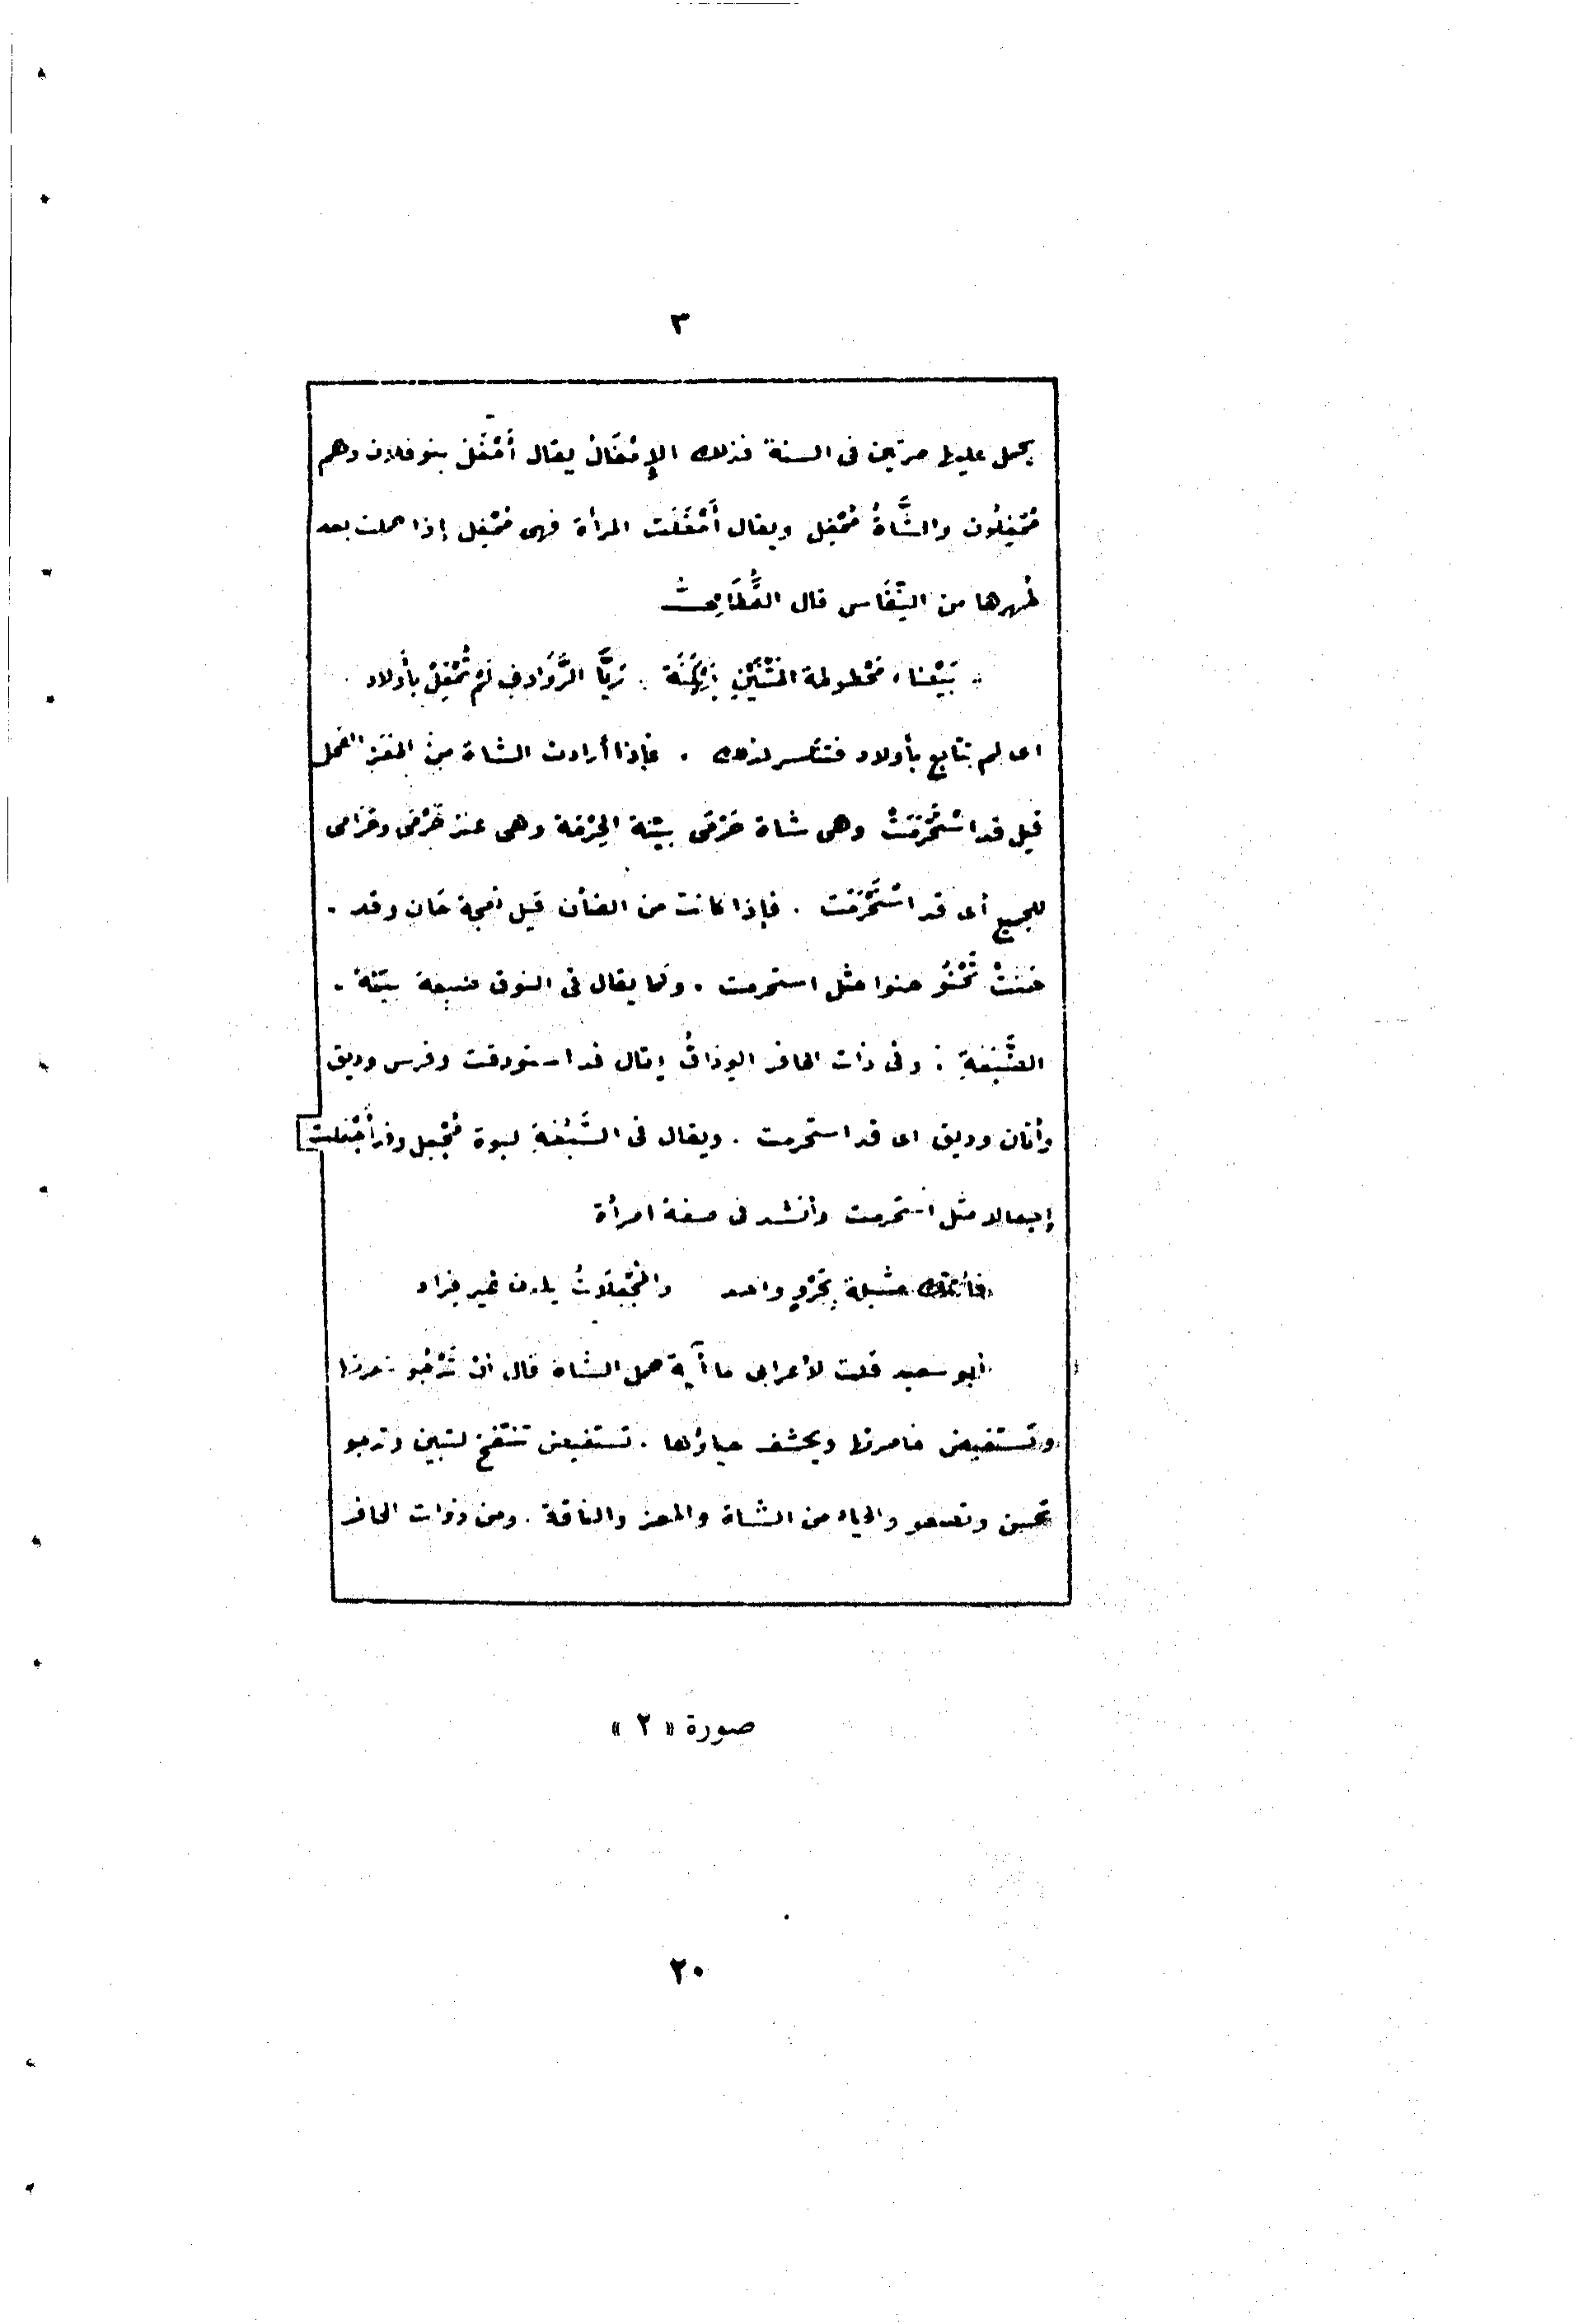 ٣
يحمل عليها مرتين فى السنة فذلك الإِمْغَالُ يقال أَمْغَلَ بنو فلان وهم
مُمْغِلُون والشَّاةُ مُمْغِل ويقال أَمْغَلَت المرأة فهى مُمْغِل إذا حملت بعد
طُهرها من النِّفَاس قال القُطَامِىّ
بَيْضاء مَحْطوطة المَتْنَيْنِ بَهْكَنَة . رَيَّا الرَّوَادِفِ لَمْ تُمْغِلْ بأَولاد
اى لم تتابع بأولاد فتنكسر لذلك . فإذا أرادت الشاة مِنَ المَعَزِ الفحل
قيل قد اسْتَحْرَمَتْ وهى شاة حَرْمَى بيّنة الحِرْمَة وهى عنز حَرْمَى وحَرَامى
للجميع أى قد اسْتَحْرَمَت . فإذا كانت من الضأن قيل نعجة حَانٍ وقد .
حَنَتْ تَحْنُو حنوا مثل استحرمت . وكما يقال فى النوق ضبعة بيّنة .
الضَّبَعَةِ . وفى ذات الحافر الوِدَاقُ يقال قد استودقت وفرس وديق
وأتان وديق اى قد استحرمت . ويقال فى السَّبُعَةِ لبوة مُجْعِل وقد أَجْعَلت
إجعالا مثل استحرمت وأنشد فى صفة امرأة
فأتتك مشبلة بِجَرْوٍ واحد والمُجْعِلَاتُ يلدن غير فراد
أبو سعيد قلت لأعرابى ما آية حمل الشاة قال أنْ تَدْجُو شعرتها
وتستفيض خاصرتها ويحشف حياؤها . تستفيض تنتفخ لتبين وتدجو
تحسن وتصفو والحياء من الشاة والمعز والناقة . ومن ذوات الحافر
صورة « ٢ »
٢٠